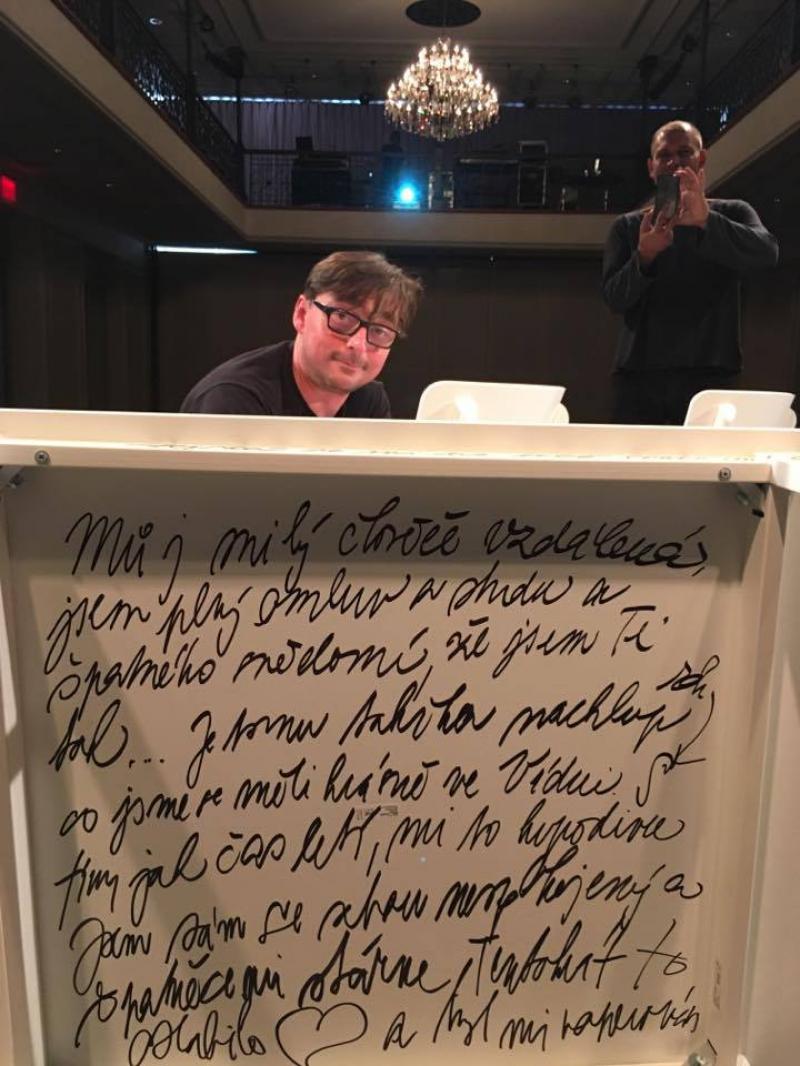 Můj milý človče vzdálená,
jsem plný omluv a studu a
špatného svědomí, že jsem Ti
tak... Je tomu takřka nachlup rok
co jsme se měli krásně ve Vídni. S
tím jak čas letí, mi to
Jsem sám se sebou nespokojený a
špatně se mi stárne. Tentokrát to
oslabilo ♡ a byl mi